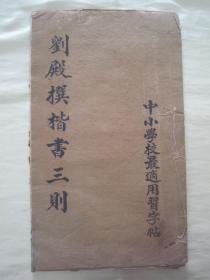 中小學校最適用習字帖
劉殿撰楷書三則